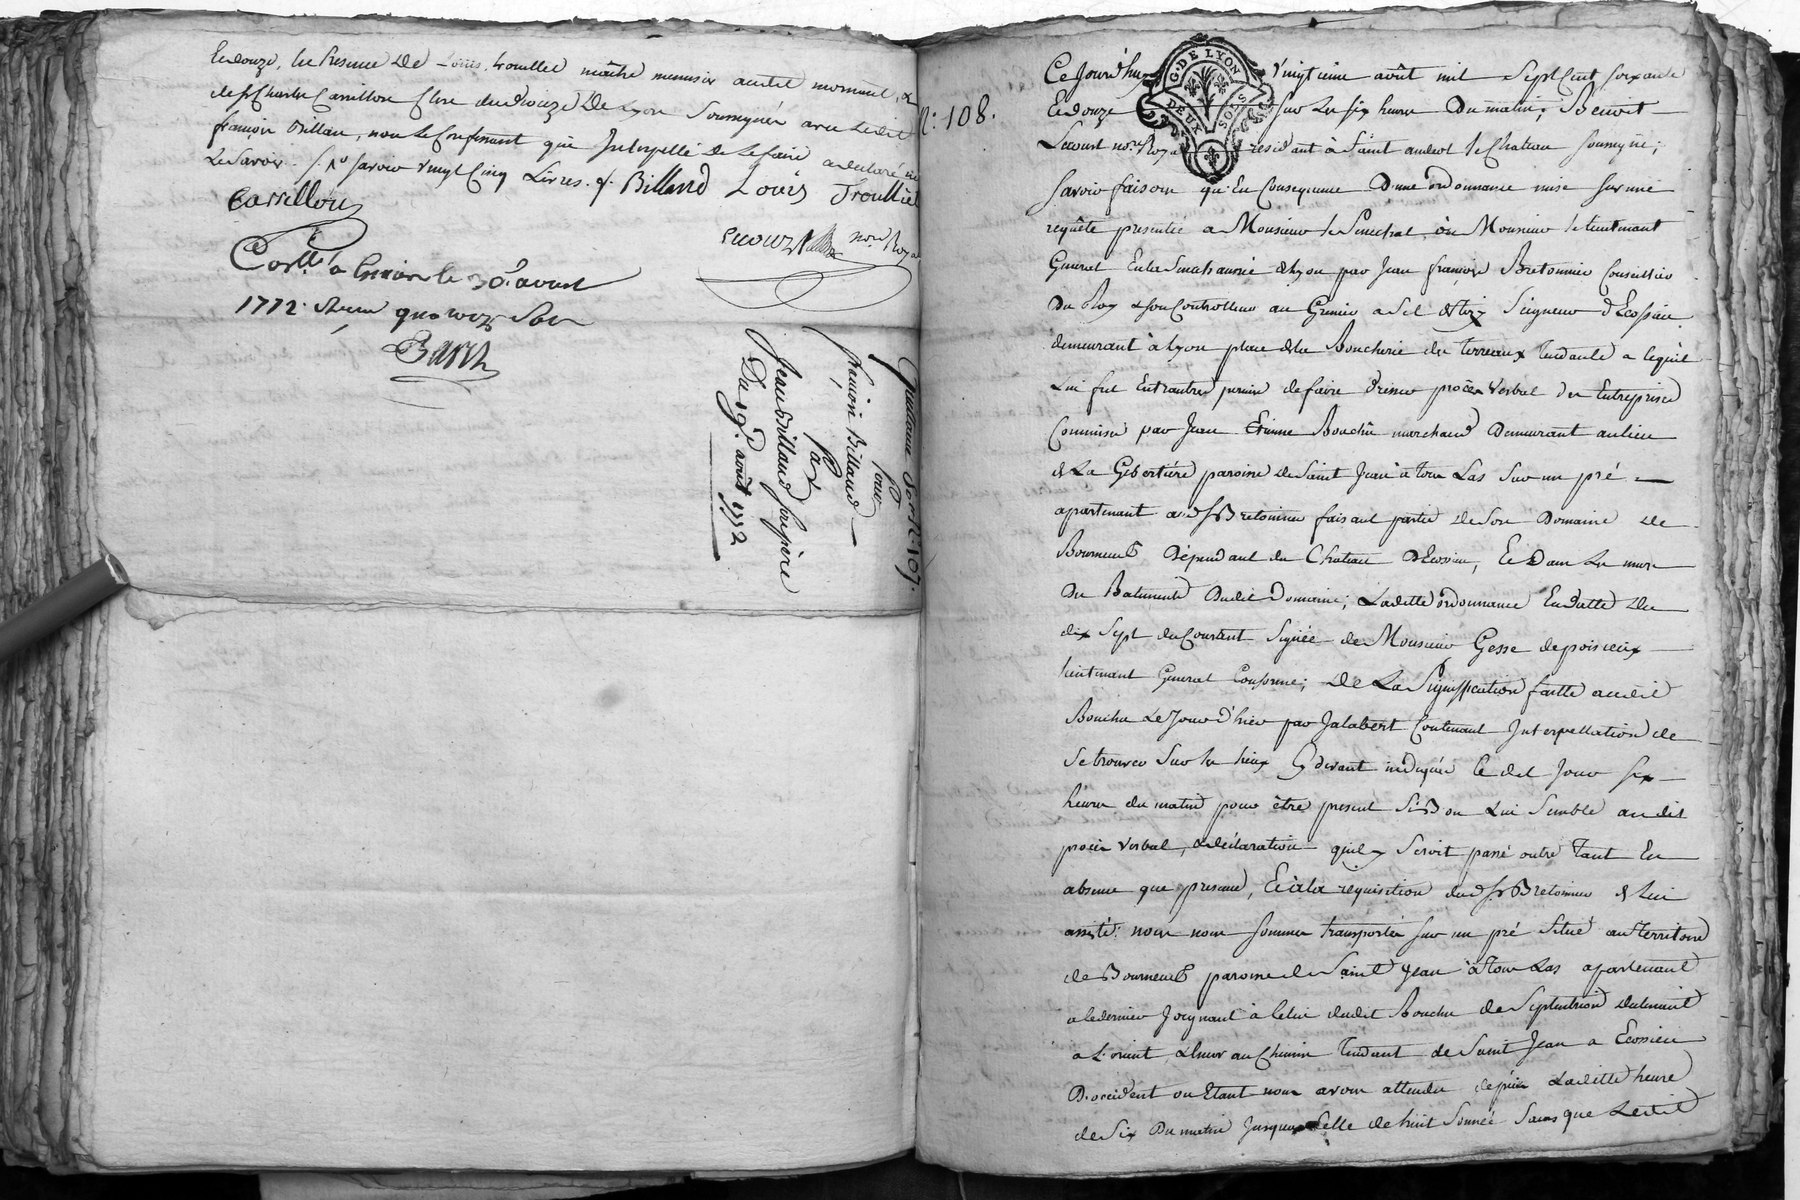 Et douze, En Presence De Louis trouillet maitre menusier audit mornant, &
de Sr Charles Carrillon Clerc du diocèze De Lyon Soussignés avec Ledit
françois Billau, non Le Confessant qui Interpellé de Le faire a declaré ne
Le Savoir. Vingt Cinq Livres. Billand Louis Trouillet
Carrillon
Lecourt no.re Roya
Conlle a le 30e aoust
1772. Reçu quatorze Sols
Barth
Quittance Sol N: 107.
pour
françois Billaud
par
Jean Billaud Son père
Du 19e. août 1772
N: 108.
G. DE LYON
DEUX SOLS
Ce Jourd'huy Vingtieme août mil Sept Cent Soixante
Et douze Sur Les Six heures Du matin; Benoit
Lecourt no.re Roya residant à Saint andeol le Chateau Soussigné;
Savoir faisons qu'En Consequence D'une ordonnance mise Sur une
requête presentée a Monsieur le Senechal, ou Monsieur le lieutenant
General En la Senechaussée de Lyon par Jean françois Bretonnier Conseiller
Du Roy & Son Controlleur au Grenier a Sel Seigneur D'Ecossieu
demeurant à Lyon place de la Boucherie des Terreaux Tendante a ce qu'il
Lui fut Entrautres permis de faire Dresser procès Verbal des Entreprises
Commises par Jean Etienne Bouchu marchand Demeurant au lieu
de La Gebertiére paroisse de Saint Jean à Tou Las Sur un pré
apartenant aud Sr Bretonnier faisant partie de Son Domaine de
Bourneuf Dépendant du Chateau D'Ecossieu, Et Dans Les murs
Des Batiments Dudit Domaine; Laditte ordonnance En datte du
dix Sept du Courant Signée de Monsieur Gesse de poisieux
lieutenant General Conforme; De La Signiffication faitte audit
Bouchu Le Jour D'hier par Jalabert Contenant Interpellation de
Se trouver Sur les lieux Cy devant indiqués Ce dit Jour Six
heures du matin pour être present Si Bon Lui Semble audit
procès Verbal, & déclaration quil y Seroit passé outre Tant En
absence que presence, Et à La requisition dud Sr Bretonnier & de lui
assisté: nous nous Sommes transportés Sur un pré Situé au Territoire
de Bourneuf paroisse de Saint Jean à Tou Las apartenant
a ce dernier Joignant à Celui dudit Bouchu de Septentrion dudit
a L'orient, & Encor au Chemin Tendant de Saint Jean a Ecossieu
D'occident ou Etant nous avons attendu depuis Laditte heure
de Six Du matin Jusques a Celle de huit Sonnée Sans que Ledit